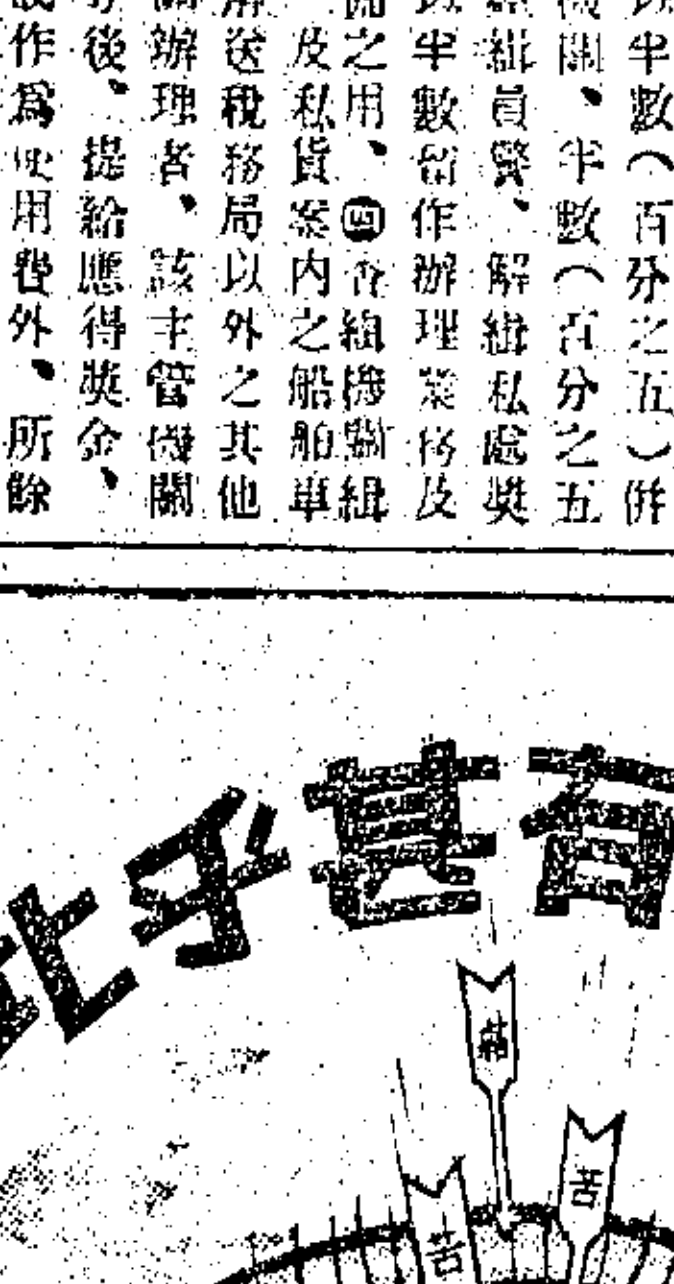 以半數（百分之五）併
機關、半數（百分之五
緝員警、解緝私處獎
以半數留作辦理業務及
之用、四查緝機關緝
及私貨案內之船舶車
解送稅務局以外之其他
關辦理者、該主管機關
後、提給應得獎金、
作爲使用費外、所餘
有甚乎此
苦
苦